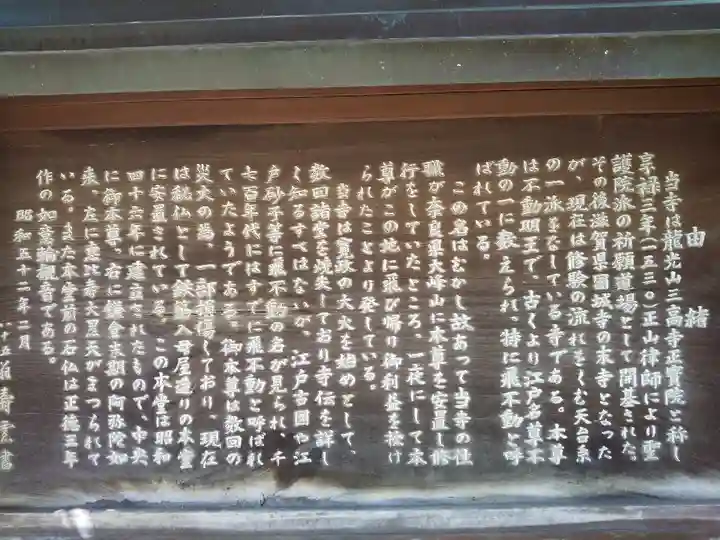 由緒
当寺は龍光山三高寺正寳院と称し
享禄三年(一五三〇)正山律師により聖
護院派の祈願道場として開基された。
その後滋賀県園城寺の末寺となった
が、現在は修験の流れをくむ天台系
の一派をなしている寺である。本尊
は不動明王で、古くより江戸名草不
動の一に数えられ、特に飛不動と呼
ばれている。
この名はむかし故あって当寺の住
職が奈良県大峰山に本尊を安置し修
行をしていたところ、一夜にして本
尊がこの地に飛び帰り御利益を授け
られたことより発している。
当寺は寛政の大火を始めとして、
数回諸堂を焼失しており寺伝を詳し
く知るすべはないが、江戸古図や江
戸砂子等に飛不動の名が見られ、千
七百年代にはすでに飛不動と呼ばれ
ていたようである。御本尊は数回の
災火の為、一部損傷しており、現在
は秘仏として鉄筋入母屋造りの本堂
に安置されている。この本堂は昭和
四十六年に建立されたもので、中央
に御本尊、右に鎌倉末期の阿弥陀如
来、左に恵比寿大黒天がまつられて
いる。また本堂前の石仏は正徳三年
作の如意輪観音である。
昭和五十二年二月
寿雲書